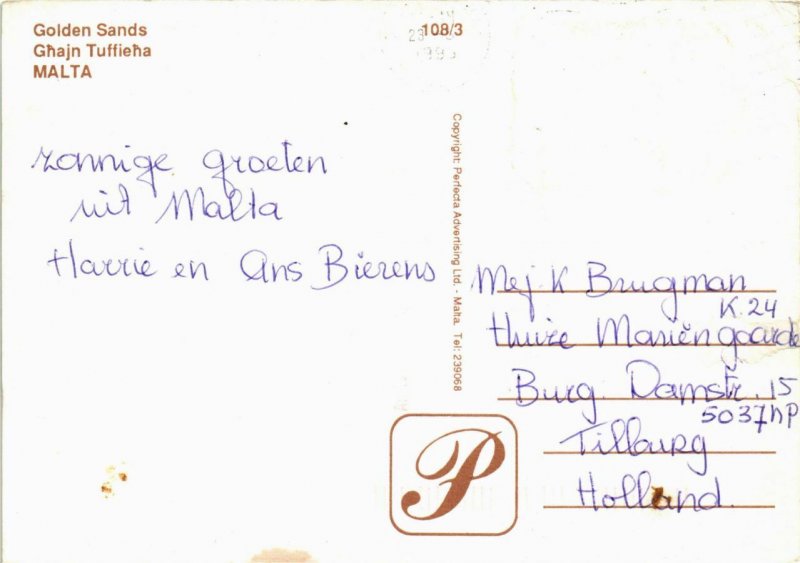 Golden Sands
Għajn Tuffieħa
MALTA
108/3
zonnige groeten
uit Malta
Harrie en Ans Bierens
Copyright: Perfecta Advertising Ltd. - Malta. Tel: 239068
Mej K Brugman
K.24
Huize Mariëngaarde
Burg. Damstr. 15
5037NP
Tilburg
Holland.
P